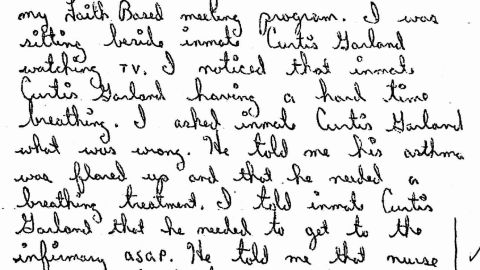 my Faith Based meeting program. I was
sitting beside inmate Curtis Garland
watching TV. I noticed that inmate
Curtis Garland having a hard time
breathing. I asked inmate Curtis Garland
what was wrong. He told me his asthma
was flared up and that he needed a
breathing treatment. I told inmate Curtis
Garland that he needed to get to the
infirmary asap. He told me that nurse